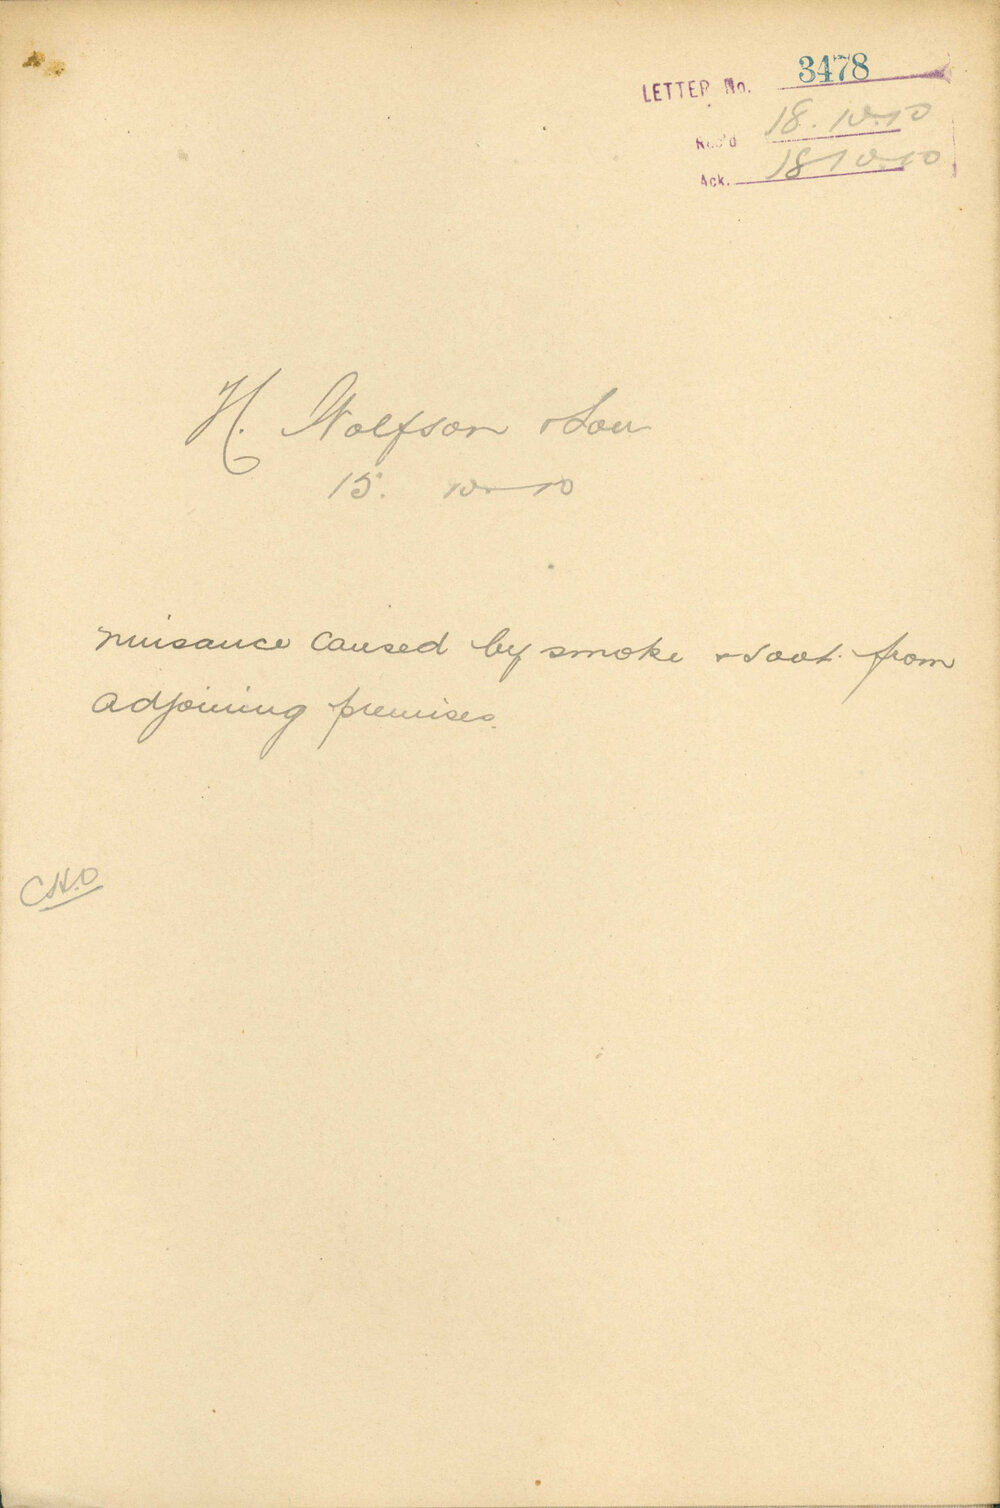 LETTER No. 3478
Rec'd 18.10.10
Ack. 18 10.10
H. Wolfson & Son
15. 10 - 10
nuisance caused by smoke & soot from
adjoining premises.
C.H.O